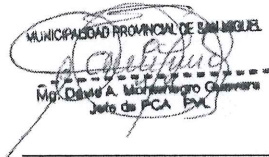 MUNICIPALIDAD PROVINCIAL DE SAN MIGUEL
Mg. David A. Montenegro Guevara
Jefe de PCA PVL